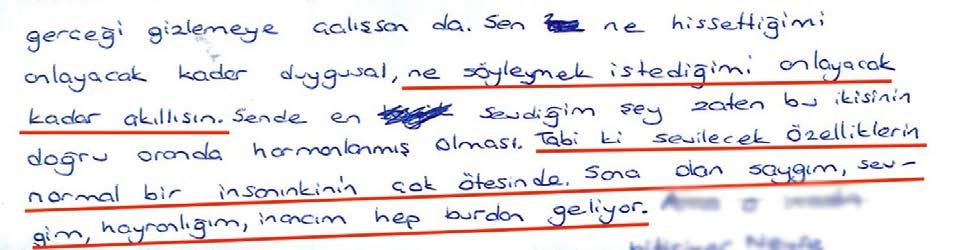 gerceği gizlemeye calışsan da. Sen ne hissettiğimi
anlayacak kadar duygusal, ne söyleymek istediğimi anlayacak
kadar akıllısın. Sende en sevdiğim şey zaten bu ikisinin
doğru oranda harmanlanmış olması. Tabi ki sevilecek özelliklerin
normal bir insanınkinin çok ötesinde. Sana olan saygım, sev-
gim, hayranlığım, inancım hep burdan geliyor.